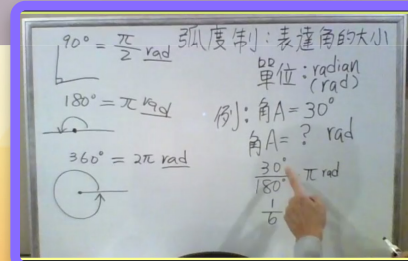 90° = π/2 rad
180° = π rad
360° = 2π rad
弧度制:表達角的大小
單位:radian
(rad)
例:角A = 30°
角A = ? rad
30°/180° π rad
1/6